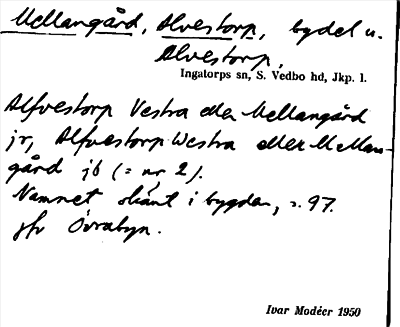 Mellangård, Alvestorp, bydel u.
Alvestorp,
Ingatorps sn, S. Vedbo hd, Jkp. l.
Alfvestorp Vestra eller Mellangård
jr, Alfvestorp Westra eller Mellan-
gård jb (= nr 2).
Namnet okänt i bygden, s. 97.
jfr Övrabyn.
Ivar Modéer 1950